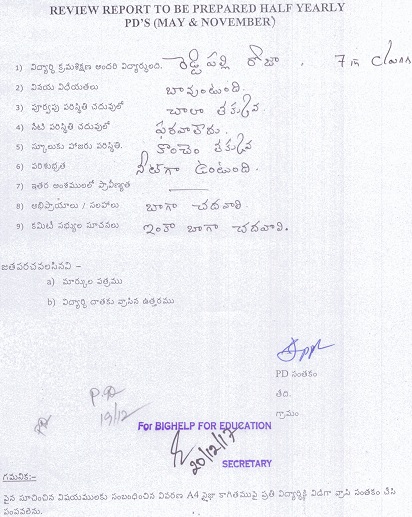 REVIEW REPORT TO BE PREPARED HALF YEARLY
PD'S (MAY & NOVEMBER)
1) విద్యార్థి క్రమశిక్షణ అందరి విద్యార్థులది. రెడ్డి పల్లి రోజా . 7th class
2) వినయ విధేయతలు బావుంటుంది.
3) పూర్వపు పరిస్థితి చదువులో చాలా తక్కువ
4) నేటి పరిస్థితి చదువులో ఫరవాలేదు.
5) స్కూలుకు హాజరు పరిస్థితి. కొంచెం తక్కువ
6) పరిశుభ్రత నీట్‌గా ఉంటుంది.
7) ఇతర అంశములలో ప్రావీణ్యత
8) అభిప్రాయాలు / సలహాలు బాగా చదవాలి.
9) కమిటీ సభ్యుల సూచనలు ఇంకా బాగా చదవాలి.
జతపరచవలసినవి –
a) మార్కుల పత్రము
b) విద్యార్థి దాతకు వ్రాసిన ఉత్తరము
PD సంతకం
తేది.
గ్రామం
19/12
For BIGHELP FOR EDUCATION
20/12/17
SECRETARY
గమనిక:-
పైన సూచించిన విషయములకు సంబంధించిన వివరణ A4 సైజు కాగితముపై ప్రతి విద్యార్థికి విడిగా వ్రాసి సంతకం చేసి
పంపవలెను.